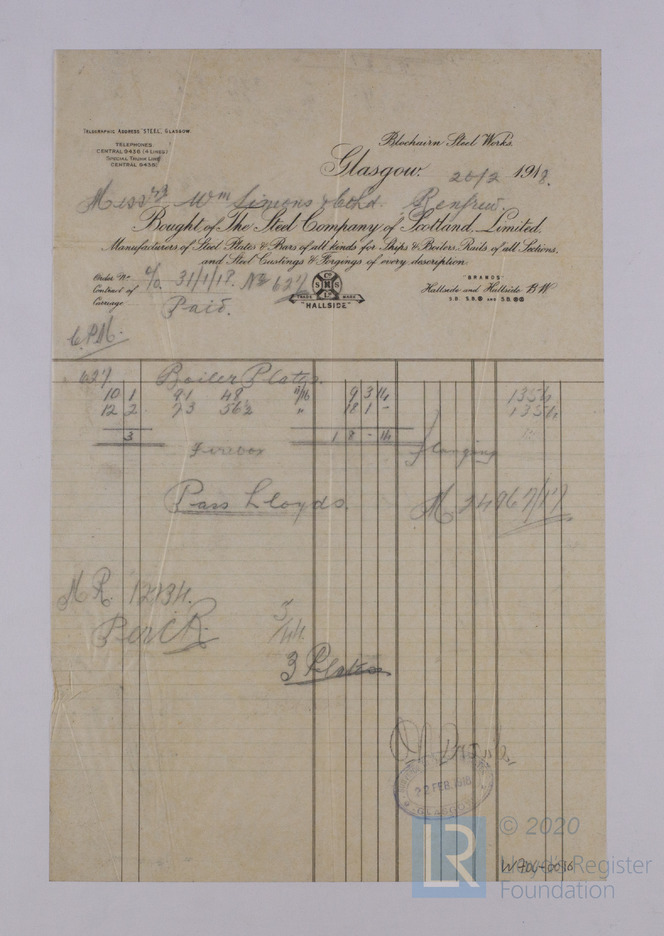 TELEGRAPHIC ADDRESS "STEEL", GLASGOW.
TELEPHONES
CENTRAL 9436 (4 LINES)
SPECIAL TRUNK LINE
CENTRAL 6458
Blochairn Steel Works.
Glasgow. 20/2 1918.
Messrs Wm Simons & Co Ld. Renfrew.
Bought of The Steel Company of Scotland, Limited.
Manufacturers of Steel Plates & Bars of all kinds for Ships & Boilers, Rails of all Sections,
and Steel Castings & Forgings of every description.
Order No 31/1/18. No 627
Contract of
Carriage Paid.
TRADE MARK
"HALLSIDE"
"BRANDS"
Hallside and Hallside B.W.
627 Boiler Plates.
10 1 91 48 11/16 9 3 14 1354
12 2 73 56½ " 18 1 - 1354
3 1 8 - 14
Firebox Flanging
Pass Lloyds. M 2496 7/17
M.R. 12134.
Per C.R.
3 Plates
22 FEB. 1918
GLASGOW
LR
© 2020
Lloyd's Register
Foundation